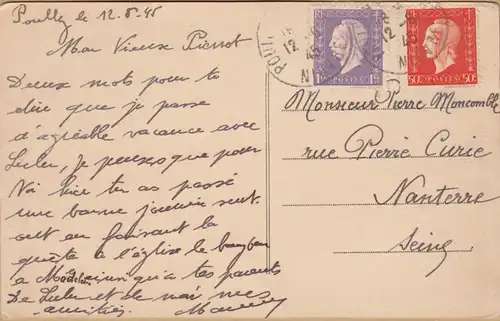 Pouilly le 12-8-45
Mon Vieux Pierrot
Deux mots pour te
dire que je passe
d'agréable vacance avec
Lulu, je pense que pour
toi hier tu as passé
une bonne journée
en faisant la
quête à l'église le
à Madeleine ainsi qu'a tes parents
De Lulu et de moi mes
amitiés
Monsieur Pierre Moncomble
rue Pierre Curie
Nanterre
Seine
POSTES
POSTES
50c 50c